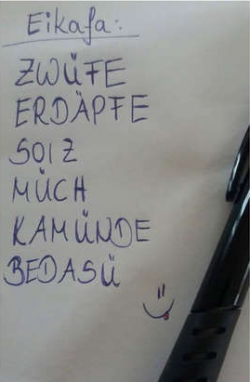 Eikafa:
ZWÜFE
ERDÄPFE
SOIZ
MÜCH
KAMÜNDE
BEDASÜ